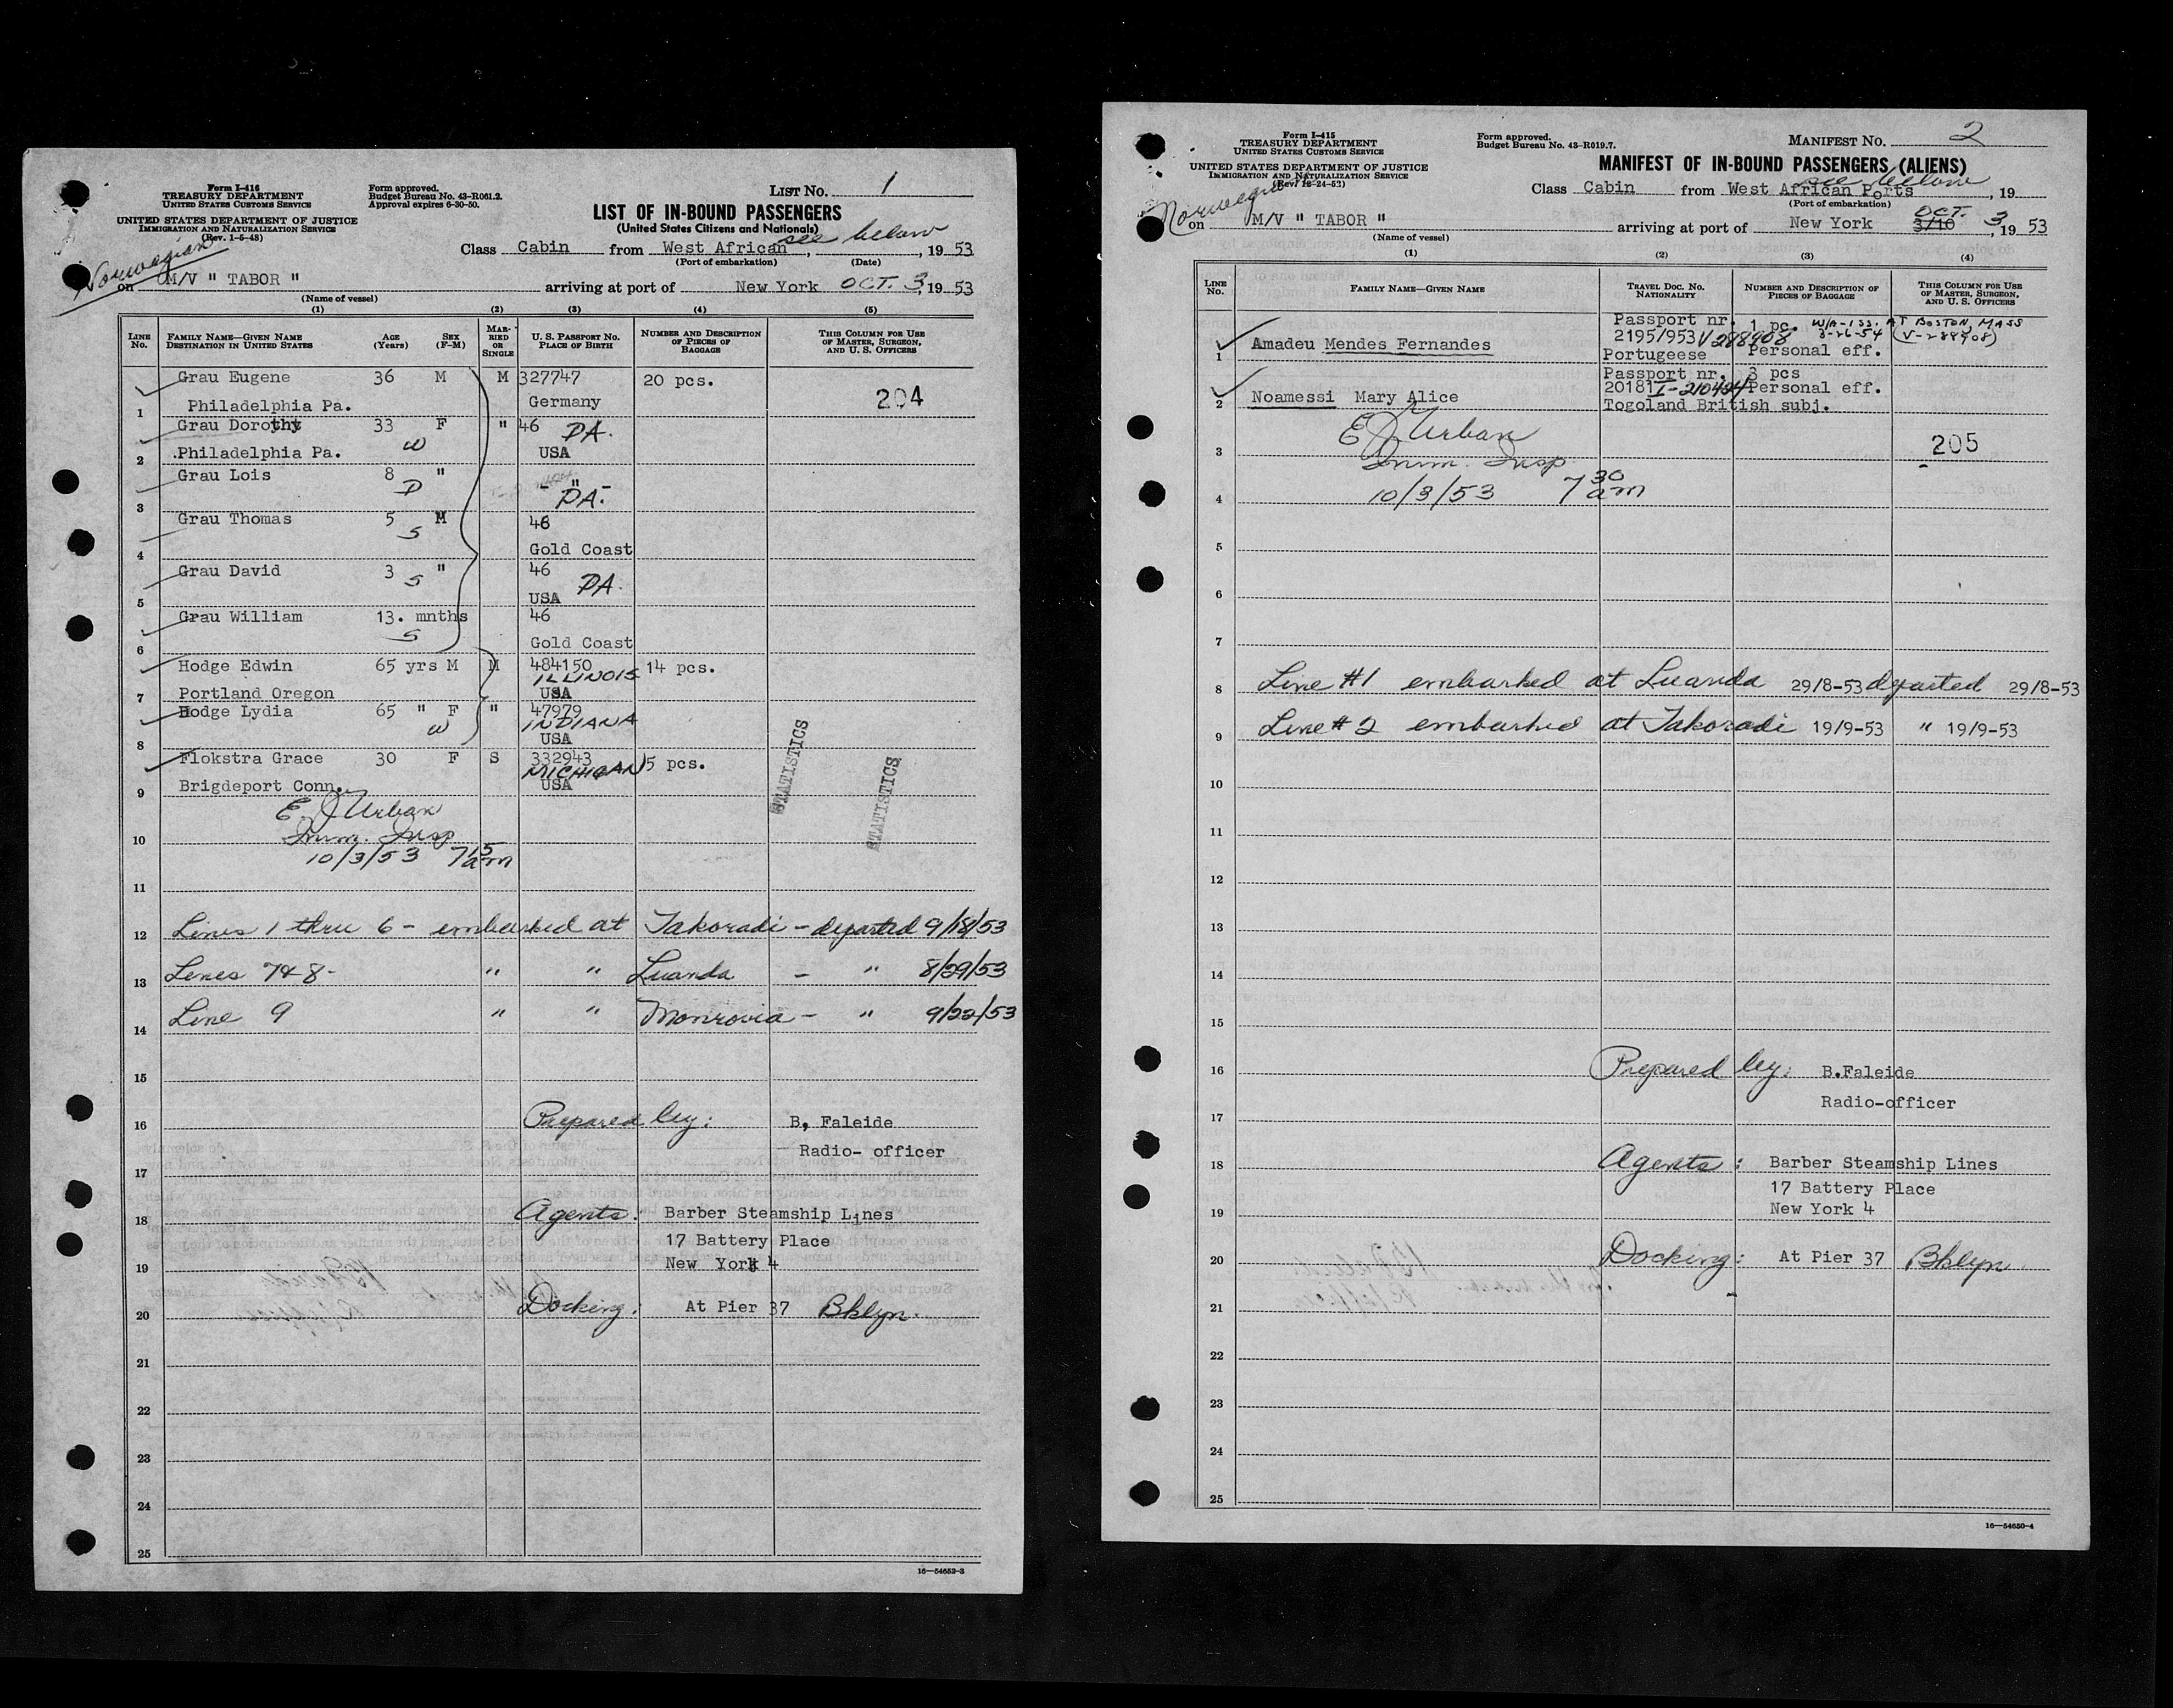 Form I-416
TREASURY DEPARTMENT
UNITED STATES CUSTOMS SERVICE
UNITED STATES DEPARTMENT OF JUSTICE
IMMIGRATION AND NATURALIZATION SERVICE
(Rev. 1-5-48)
Form approved.
Budget Bureau No. 43-R061.2.
Approval expires 6-30-50.
LIST NO. 1
LIST OF IN-BOUND PASSENGERS
(United States Citizens and Nationals)
Class Cabin from West African see below, 19 53
(Port of embarkation) (Date)
Norwegian
on M/V " TABOR " arriving at port of New York OCT. 3, 19 53
(Name of vessel)
(1) (2) (3) (4) (5)
LINE NO. FAMILY NAME—GIVEN NAME DESTINATION IN UNITED STATES AGE (Years) SEX (F-M) MARRIED OR SINGLE U. S. PASSPORT NO. PLACE OF BIRTH NUMBER AND DESCRIPTION OF PIECES OF BAGGAGE THIS COLUMN FOR USE OF MASTER, SURGEON, AND U. S. OFFICERS
Grau Eugene 36 M M 327747 20 pcs. 204
1 Philadelphia Pa. Germany
Grau Dorothy 33 F " 46 PA.
2 Philadelphia Pa. W USA
Grau Lois 8 D " - " - PA.
3
Grau Thomas 5 S M 46
4 Gold Coast
Grau David 3 S " 46
5 USA PA.
Grau William 13. mnths 46
6 S Gold Coast
Hodge Edwin 65 yrs M M 484150 14 pcs.
ILLINOIS
7 Portland Oregon USA
Hodge Lydia 65 " F " 47979
W INDIANA
8 USA
Flokstra Grace 30 F S 332943 5 pcs.
MICHIGAN
9 Brigdeport Conn. USA
STATISTICS
STATISTICS
E. J. Urban
10 Imm. Insp
10/3/53 7 15 am
11
12 Lines 1 thru 6 - embarked at Takoradi - departed 9/18/53
13 Lines 7 & 8 - " " Luanda - " 8/29/53
14 Line 9 " " Monrovia - " 9/22/53
15
16 Prepared by: B, Faleide
Radio- officer
17
18 Agents: Barber Steamship Lines
17 Battery Place
19 New York 4
20 Docking: At Pier 37 Bklyn.
21
22
23
24
25
16—54652-3
Form I-415
TREASURY DEPARTMENT
UNITED STATES CUSTOMS SERVICE
UNITED STATES DEPARTMENT OF JUSTICE
IMMIGRATION AND NATURALIZATION SERVICE
(Rev. 12-24-52)
Form approved.
Budget Bureau No. 43-R019.7.
MANIFEST NO. 2
MANIFEST OF IN-BOUND PASSENGERS (ALIENS)
Class Cabin from West African Ports see below, 19
(Port of embarkation)
Norwegian
on M/V " TABOR " arriving at port of New York 3/10 OCT. 3, 19 53
(Name of vessel)
(1) (2) (3) (4)
LINE NO. FAMILY NAME—GIVEN NAME TRAVEL DOC. NO. NATIONALITY NUMBER AND DESCRIPTION OF PIECES OF BAGGAGE THIS COLUMN FOR USE OF MASTER, SURGEON, AND U. S. OFFICERS
Passport nr. 1 pc. W/A-1 ISS. AT BOSTON, MASS
2195/953 V288908 3-26-54 (V-288908)
1 Amadeu Mendes Fernandes Portugeese Personal eff.
Passport nr. 3 pcs
20181 I-210424 Personal eff.
2 Noamessi Mary Alice Togoland British subj.
E J Urban
3 Imm. Insp. 205
4 10/3/53 7 30 am
5
6
7
8 Line #1 embarked at Luanda 29/8-53 departed 29/8-53
9 Line #2 embarked at Takoradi 19/9-53 " 19/9-53
10
11
12
13
14
15
16 Prepared by: B.Faleide
17 Radio-officer
18 Agents: Barber Steamship Lines
17 Battery Place
19 New York 4
20 Docking: At Pier 37 Bklyn.
21
22
23
24
25
16—54650-4